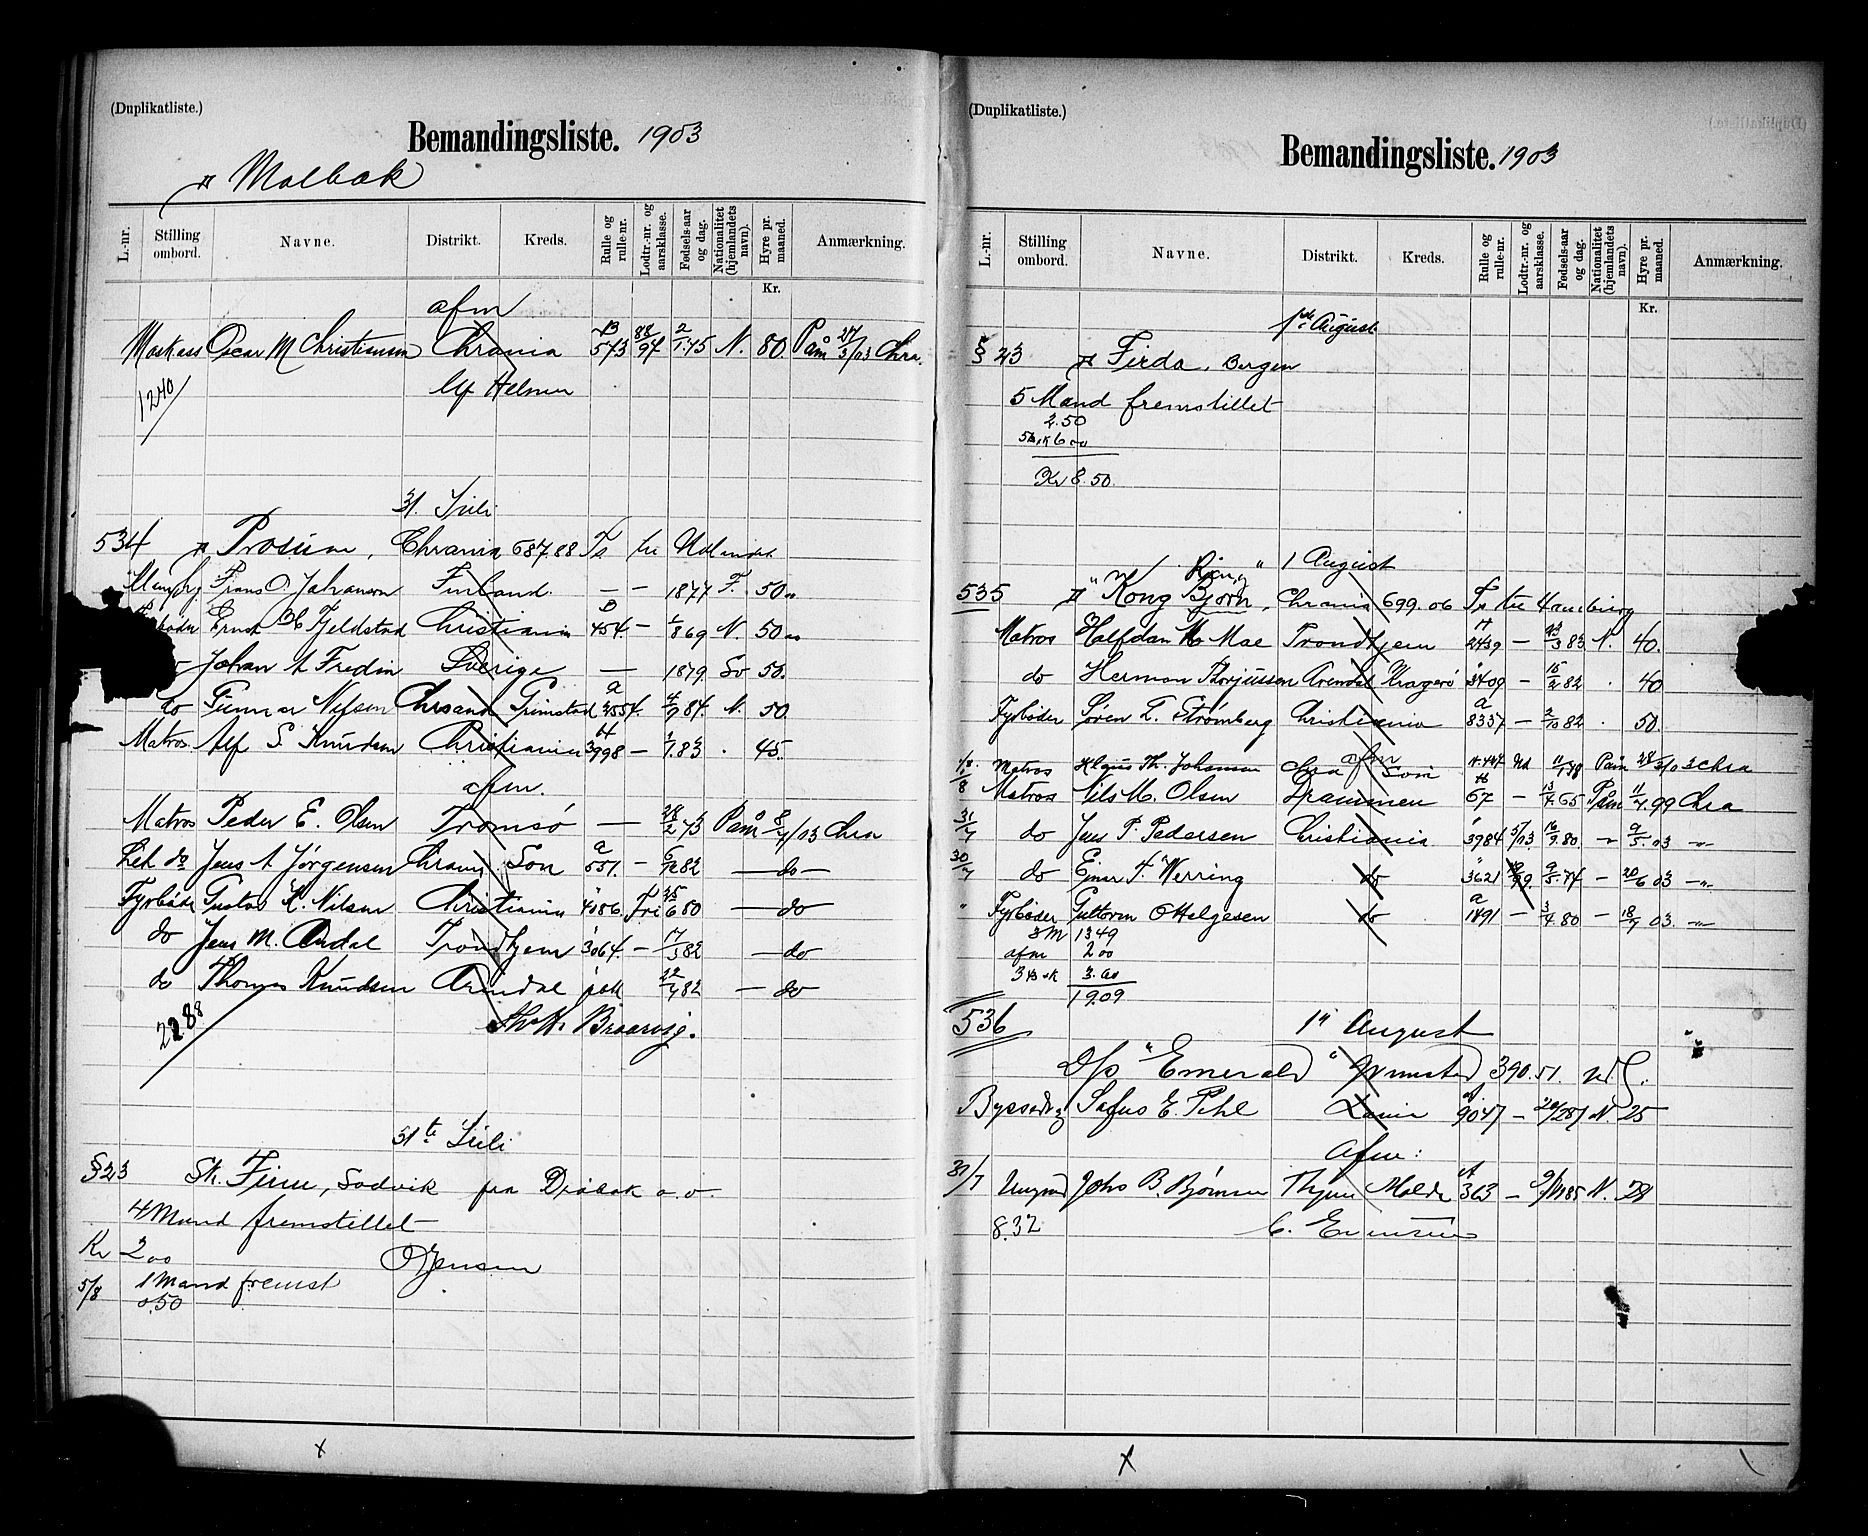 (Duplikatliste.)
Bemandingsliste. 1903
Malbak
L.-nr. Stilling ombord. Navne. Distrikt. Kreds. Rulle og rulle-nr. Lodtr.-nr. og aarsklasse. Fødsels-aar og dag. Nationalitet (hjemlandets navn). Hyre pr. maaned. Anmærkning.
Kr.
afm
Maskass Oscar M Christiansen Chrania 543 88/94 2/1 45 N. 80 Paa 27/3/03 Chra.
1240 Helmer
31. Juli
534 Prosum, Chrania 687.88 Ts til Udlandet
Frans O. Johanson Finland. — — 1877 F. 50
Ernst H Fjeldstad Christiania 454 — 869 N. 50
Johan A Fredin Sverige — 1879 Sv 50.
do Gunnar Nilsen Chrsand Grimstad 2554. 4/9 84. N. 50
Matros Alf S. Knudsen Christiania 3998 — 1/7 83 . 45.
afm.
Matros Peder E. Olsen Tromsø — 28/2 73 Paam 8/7/03 Chra
Let do Jens A Jørgensen Chrania Son a 551. — 82 — do —
Fyrbøder Gustav K. Nilsen Christiania 4086. Fri 25/6 80 — do
do Jens M. Andal Trondhjem 3064. — 17/3 82 — do
do Thomas Knudsen Arendal 22/7 82 — do
2288
Braarvig.
31te Juli
§23 Sk. Finn, Sodvik fra Drøbak o. o.
4 Mand fremstillet
Kr 2 00 O Jensen
5/8 1 Mand fremst
0.50
(Duplikatliste.)
Bemandingsliste. 1903
L.-nr. Stilling ombord. Navne. Distrikt. Kreds. Rulle og rulle-nr. Lodtr.-nr. og aarsklasse. Fødsels-aar og dag. Nationalitet (hjemlandets navn). Hyre pr. maaned. Anmærkning.
Kr.
1ste August
§ 23 Firda, Bergen
5 Mand fremstillet
2.50
6 00
Kr 8.50
Ring 1 August
535 "Kong Bjørn, Chrania 699.06 Ts til Hamburg
Matros Halfdan M Moe Trondhjem 2439 — 23/3 83 N. 40.
do Herman Torjussen Arendal Kragerø 2409 — 15/2 82 . 40
Fyrbøder Søren L. Strømberg Christiania a 8337 — 2/10 82 . 50.
afm
1/8 Matros Th. Johansen Chra Son Paam 28/3/03 Chra
1/8 Matros Nils M. Olsen Drammen 67 — 13/4 65 Paam 11/4 99 Chra
31/7 do Jens P. Pedersen Christiania 3984 5/03 16/9 80 — 9/5 03 — "
30/7 do Einar F. Werring do 3621 9/5 74 — 20/6 03 — "
" Fyrbøder Guttorm O Helgesen do a 1491 — 3/4 80 — 18/7 03. — "
13 49
afm 2 00
3.60
19.09
536 1ste August
D/s "Emerald" Grimstad 390.51.
Byssedrg Sofus E. Pihl Larvik 9047 — 20/2 87 N. 25
afm:
31/7 Ungmd Johs B. Bjørnsen Thjem Molde A 363 — 9/11 85 N. 28
8.32 C. Evensen